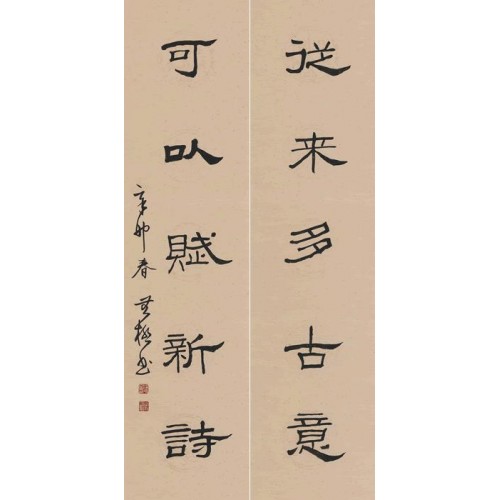 從来多古意
可以賦新詩
辛卯春